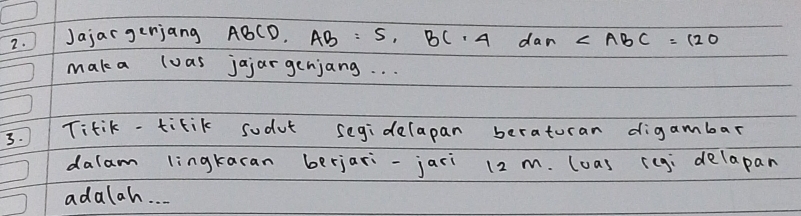 2. Jajargenjang ABCD. AB = 5, BC = 4 dan < ABC = 120
maka luas jajargenjang...
3. Titik - titik sudut segidelapan beraturan digambar
dalam lingkaran berjari - jari 12 m. luas segi delapan
adalah...